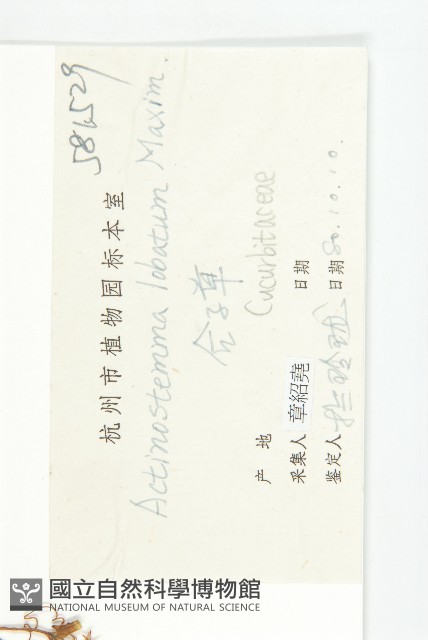 586529
杭州市植物园标本室
Actinostemma lobatum Maxim.
合子草
Cucurbitaceae
产 地
采集人 章紹堯 日期
鉴定人 日期 80.10.10.
國立自然科學博物館
NATIONAL MUSEUM OF NATURAL SCIENCE